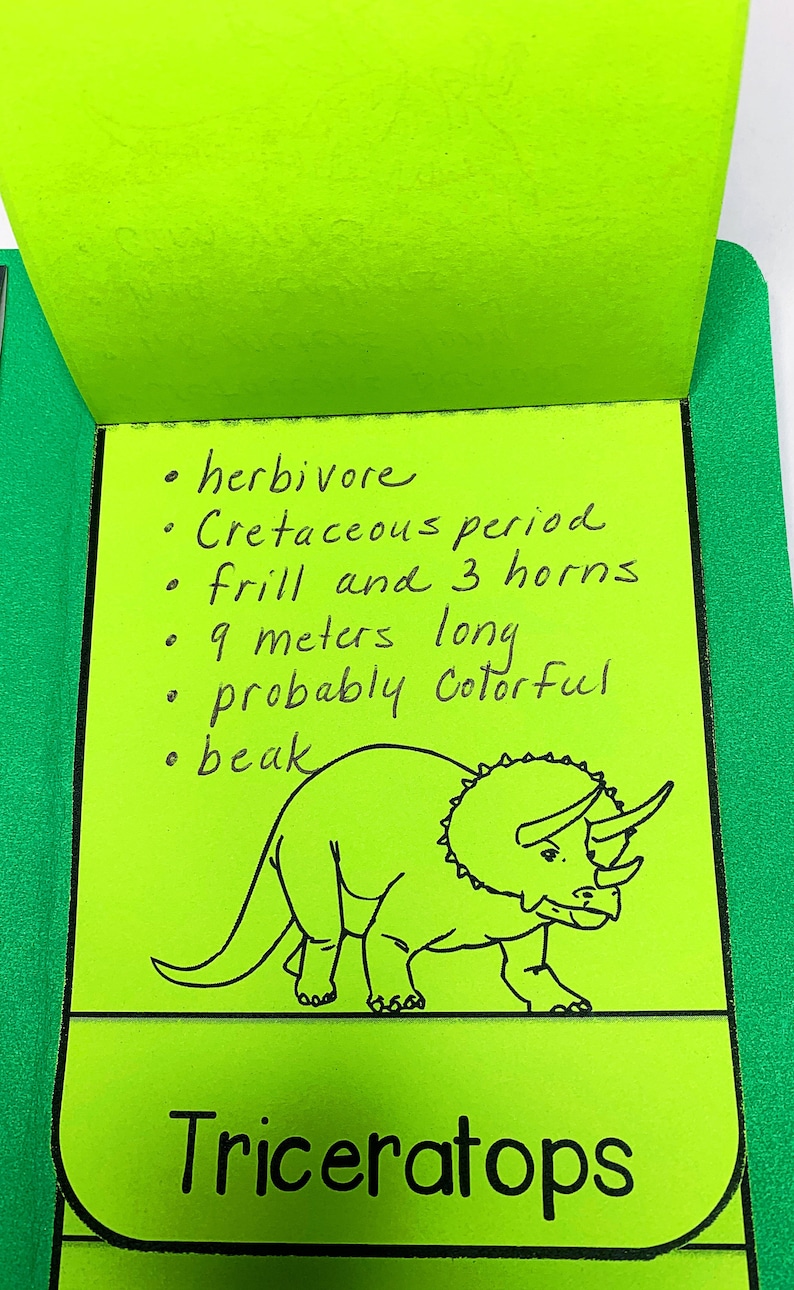 • herbivore
• Cretaceous period
• frill and 3 horns
• 9 meters long
• probably Colorful
• beak
Triceratops